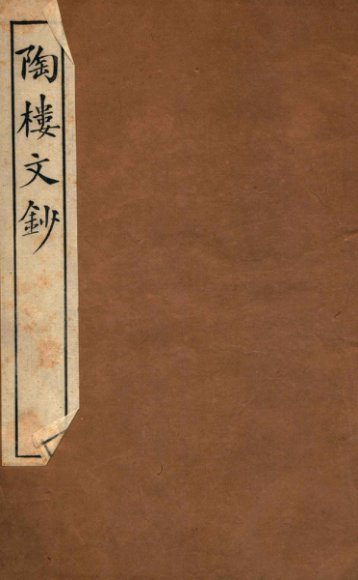 陶樓文鈔